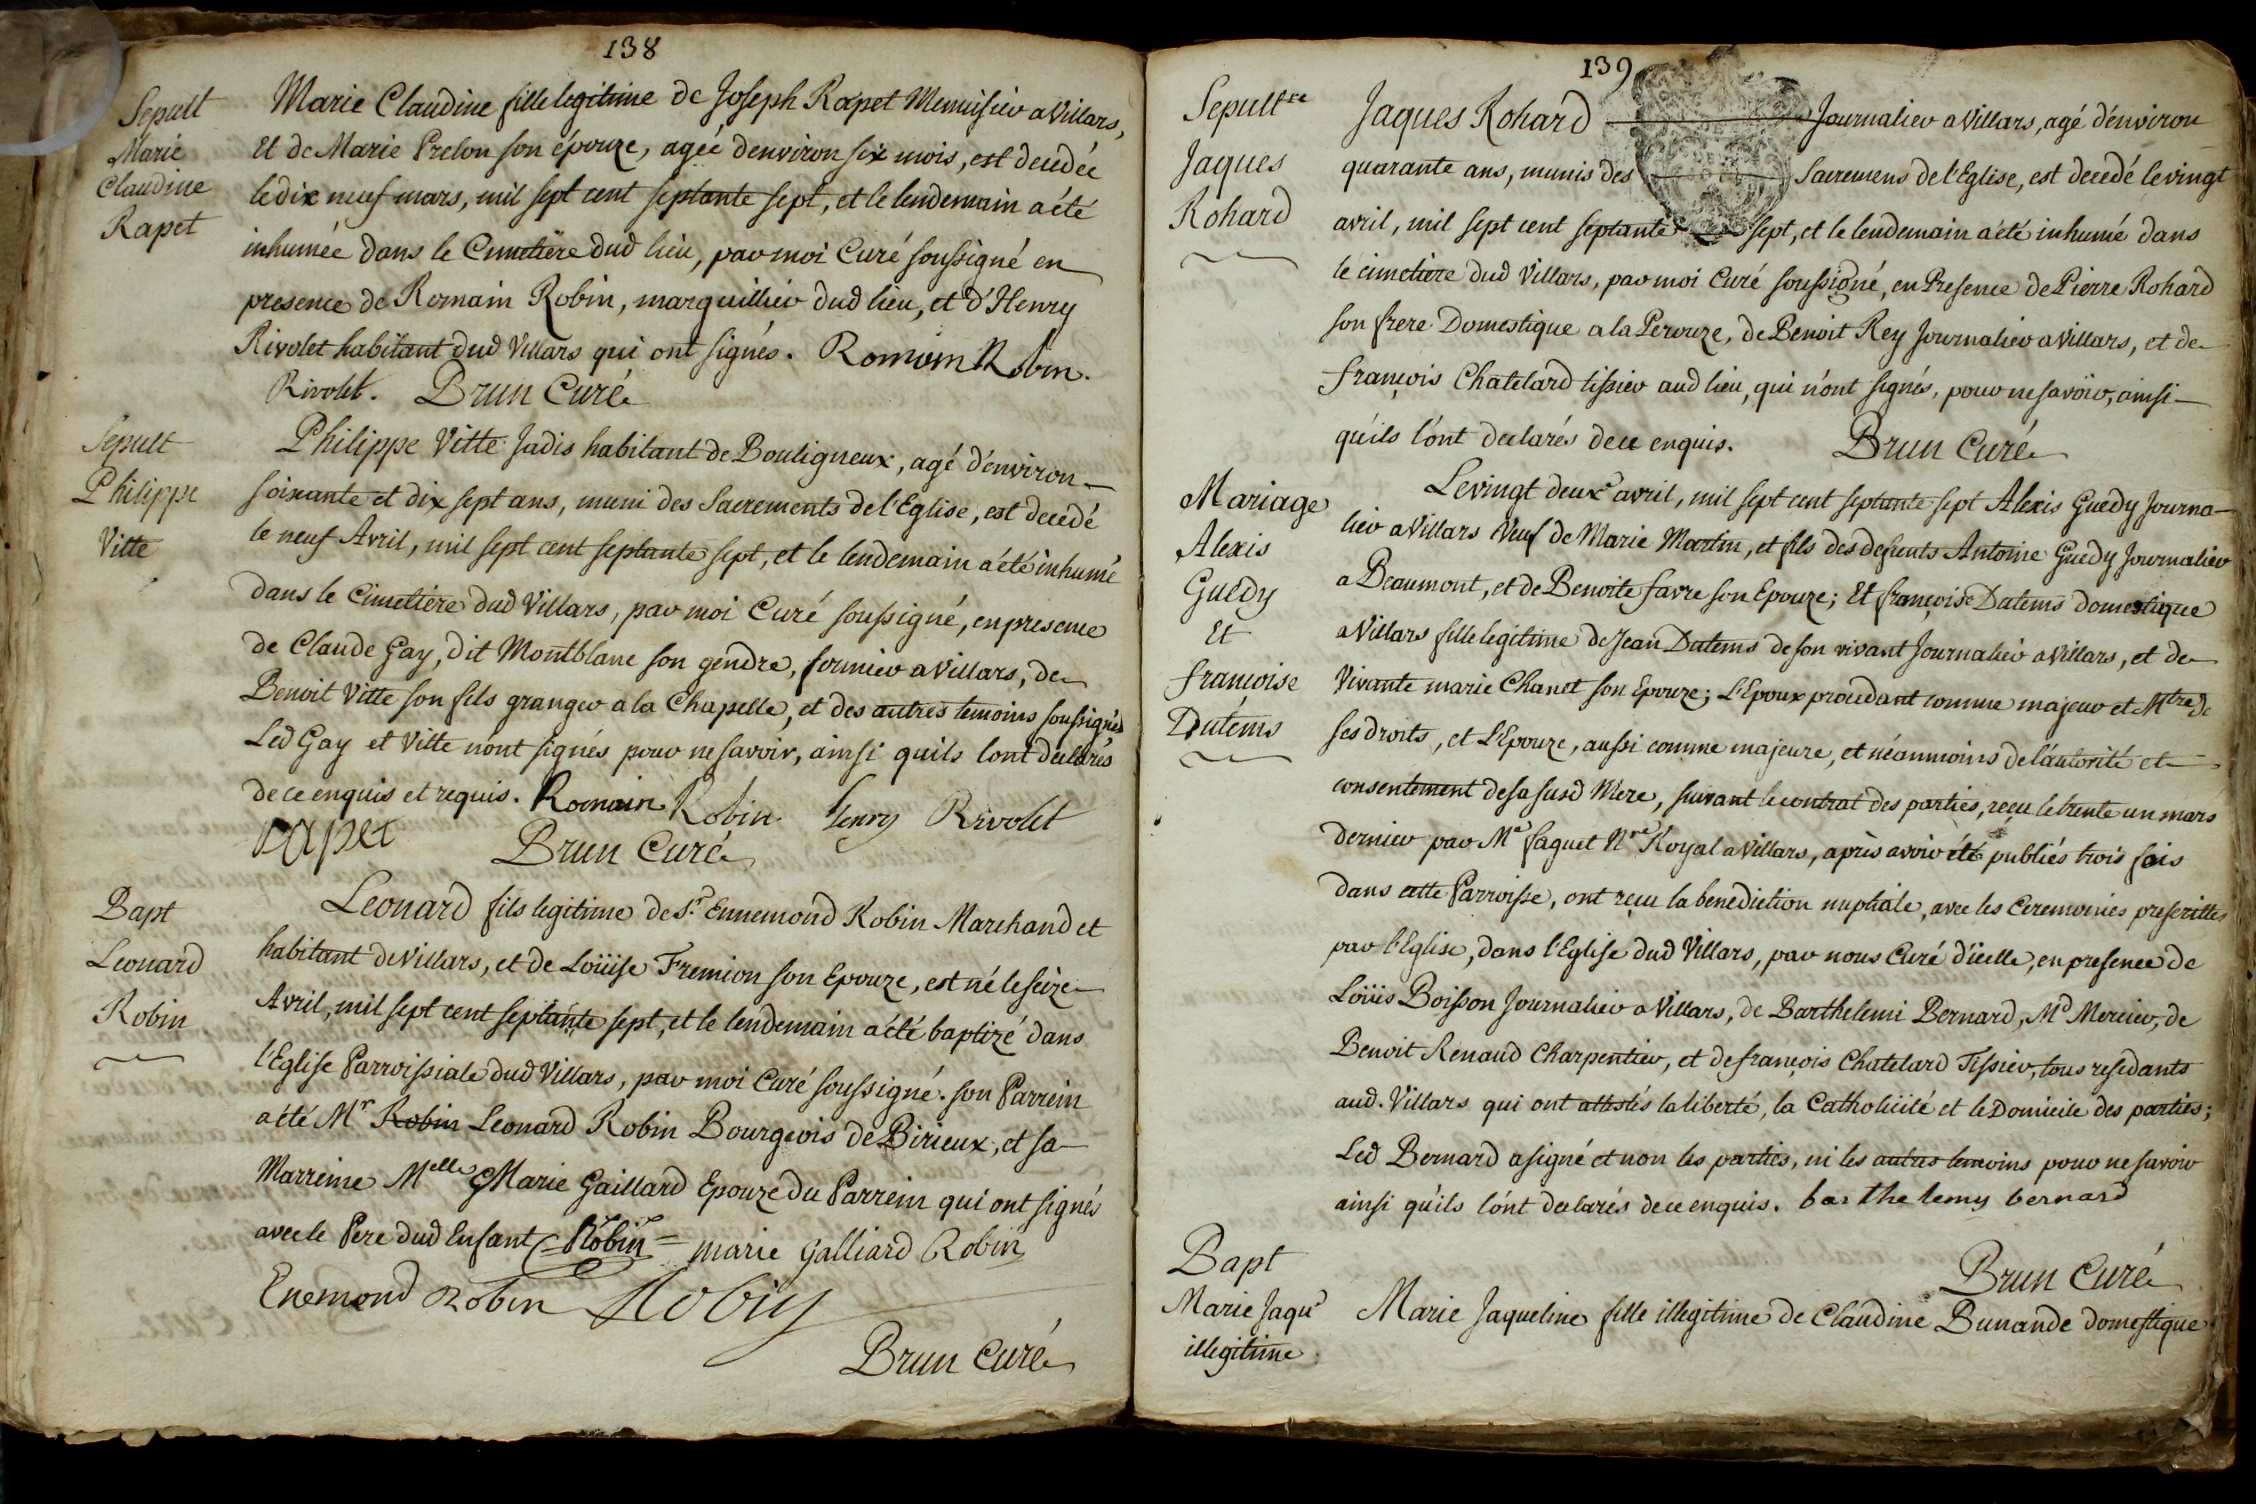 138
Sepult
Marie
Claudine
Rapet
Marie Claudine fille legitime de Joseph Rapet Menuisier a Villars,
Et de Marie Prelon son épouze, agée d'environ six mois, est decedée
le dix neuf mars, mil sept cent septante sept, et le lendemain a été
inhumée dans le Cimetière dud lieu, par moi Curé soussigné en
presence de Romain Robin, marguillier dud lieu, et d'Henry
Rivolet habitant dud Villars qui ont signés. Romain Robin.
Rivolet. Brun Curé
Sepult
Philippe
Vitte
Philippe Vitte Jadis habitant de Bouligneux, agé d'environ
soixante et dix sept ans, muni des Sacrements de l'Eglise, est decedé
le neuf Avril, mil sept cent septante sept, et le lendemain a été inhumé
dans le Cimetière dud Villars, par moi Curé soussigné, en presence
de Claude Gay, dit Montblanc son gendre, fermier a Villars, de
Benoit Vitte son fils granger a la Chapelle, et des autres temoins soussignés
Led Gay et Vitte n'ont signés pour ne savoir, ainsi quils lont declarés
de ce enquis et requis. Romain Robin. henry Rivolet
rapet Brun Curé
Bapt
Leonard
Robin
Leonard fils legitime de Sr. Ennemond Robin Marchand et
habitant de Villars, et de Loüise Fremion son Epouze, est né le seize
Avril, mil sept cent septante sept, et le lendemain a été baptizé dans
l'Eglise Parroissiale dud Villars, par moi Curé soussigné. son Parrein
a été Mr Robin Leonard Robin Bourgeois de Birieux, et sa
Marreine Melle Marie Gaillard Epouze du Parrein qui ont signés
avec le Pere dud Enfant Robin marie Galliard Robin
Enemond Robin Robin
Brun Curé
139
Sepultre
Jaques
Rohard
Jaques Rohard Journalier a Villars, agé d'environ
quarante ans, munis des Sacremens de l'Eglise, est decedé le vingt
avril, mil sept cent septante sept, et le lendemain a été inhumé dans
le cimetiere dud Villars, par moi Curé soussigné, en Presence de Pierre Rohard
son frere Domestique a la Perouze, de Benoit Rey Journalier a Villars, et de
françois Chatelard tissier aud lieu, qui n'ont signés, pour ne savoir, ainsi
qu'ils l'ont declarés de ce enquis. Brun Curé
Mariage
Alexis
Guedy
Et
françoise
Dutems
Le vingt deux avril, mil sept cent septante sept Alexis Guedy Journa-
lier a Villars Veuf de Marie Martin, et fils des defunts Antoine Guedy Journalier
a Beaumont, et de Benoite favre son Epouze; Et françoise Dutems domestique
a Villars fille legitime de Jean Dutems de son vivant Journalier a Villars, et de
Vivante marie Chanet son Epouze; L'Epoux procedant comme majeur et Mtre de
ses droits, et L'Epouze, aussi comme majeure, et néanmoins de l'autorité et
consentement de sa susd Mere, suivant le contrat des parties, reçu le trente un mars
dernier par Me faguet Nre Royal a Villars, après avoir été publiés trois fois
dans cette Parroisse, ont reçu la benediction nuptiale, avec les Ceremonies prescrittes
par l'Eglise, dans l'Eglise dud Villars, par nous Curé d'icelle, en presence de
Loüis Boisson Journalier a Villars, de Barthelemi Bernard, Md Mercier, de
Benoit Renaud Charpentier, et de françois Chatelard Tissier, tous residants
aud. Villars qui ont attestés la liberté, la Catholicité et le Domicile des parties;
Led Bernard a signé et non les parties, ni les autres temoins pour ne savoir
ainsi qu'ils l'ont declarés de ce enquis. barthelemy bernard
Brun Curé
Bapt
Marie Jaqu
illegitime
Marie Jaqueline fille illegitime de Claudine Bunande domestique